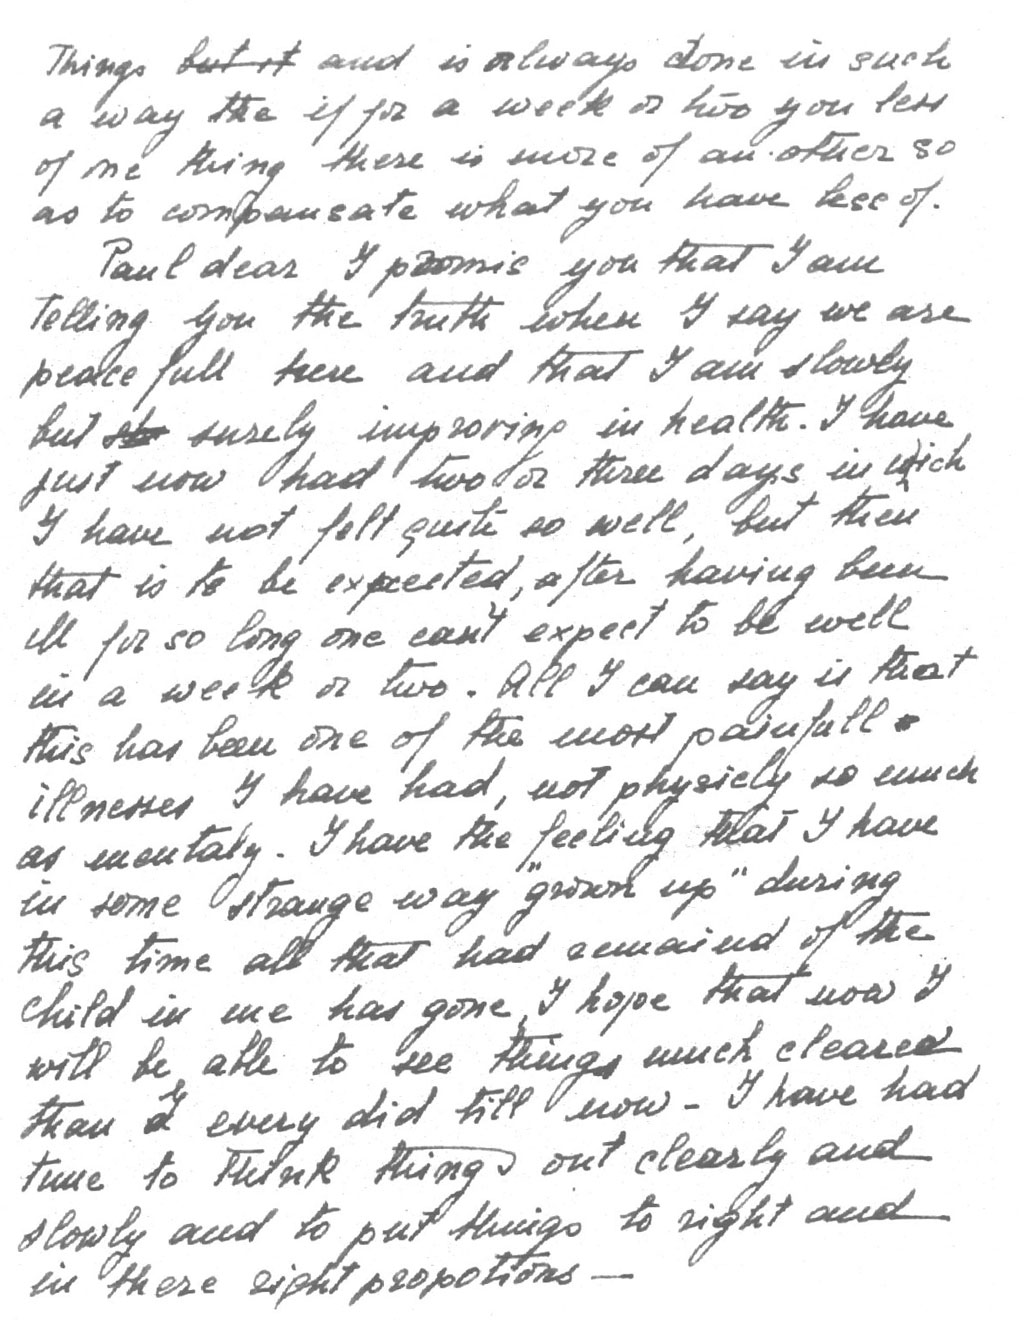 Things but it and is always done in such
a way the if for a week or two you less
of one thing there is more of an other so
as to compensate what you have less of.
Paul dear I promis you that I am
telling you the truth when I say we are
peace full here and that I am slowly
but surely improving in health. I have
just now had two or three days in wich
I have not felt quite so well, but then
that is to be expected, after having been
ill for so long one can't expect to be well
in a week or two. All I can say is that
this has been one of the most painfull
illnesses I have had, not physicly so much
as mentaly. I have the feeling that I have
in some strange way "grown up" during
this time all that had remained of the
child in me has gone, I hope that now I
will be able to see things much cleared
than I every did till now - I have had
time to think things out clearly and
slowly and to put things to right and
in there right propotions —